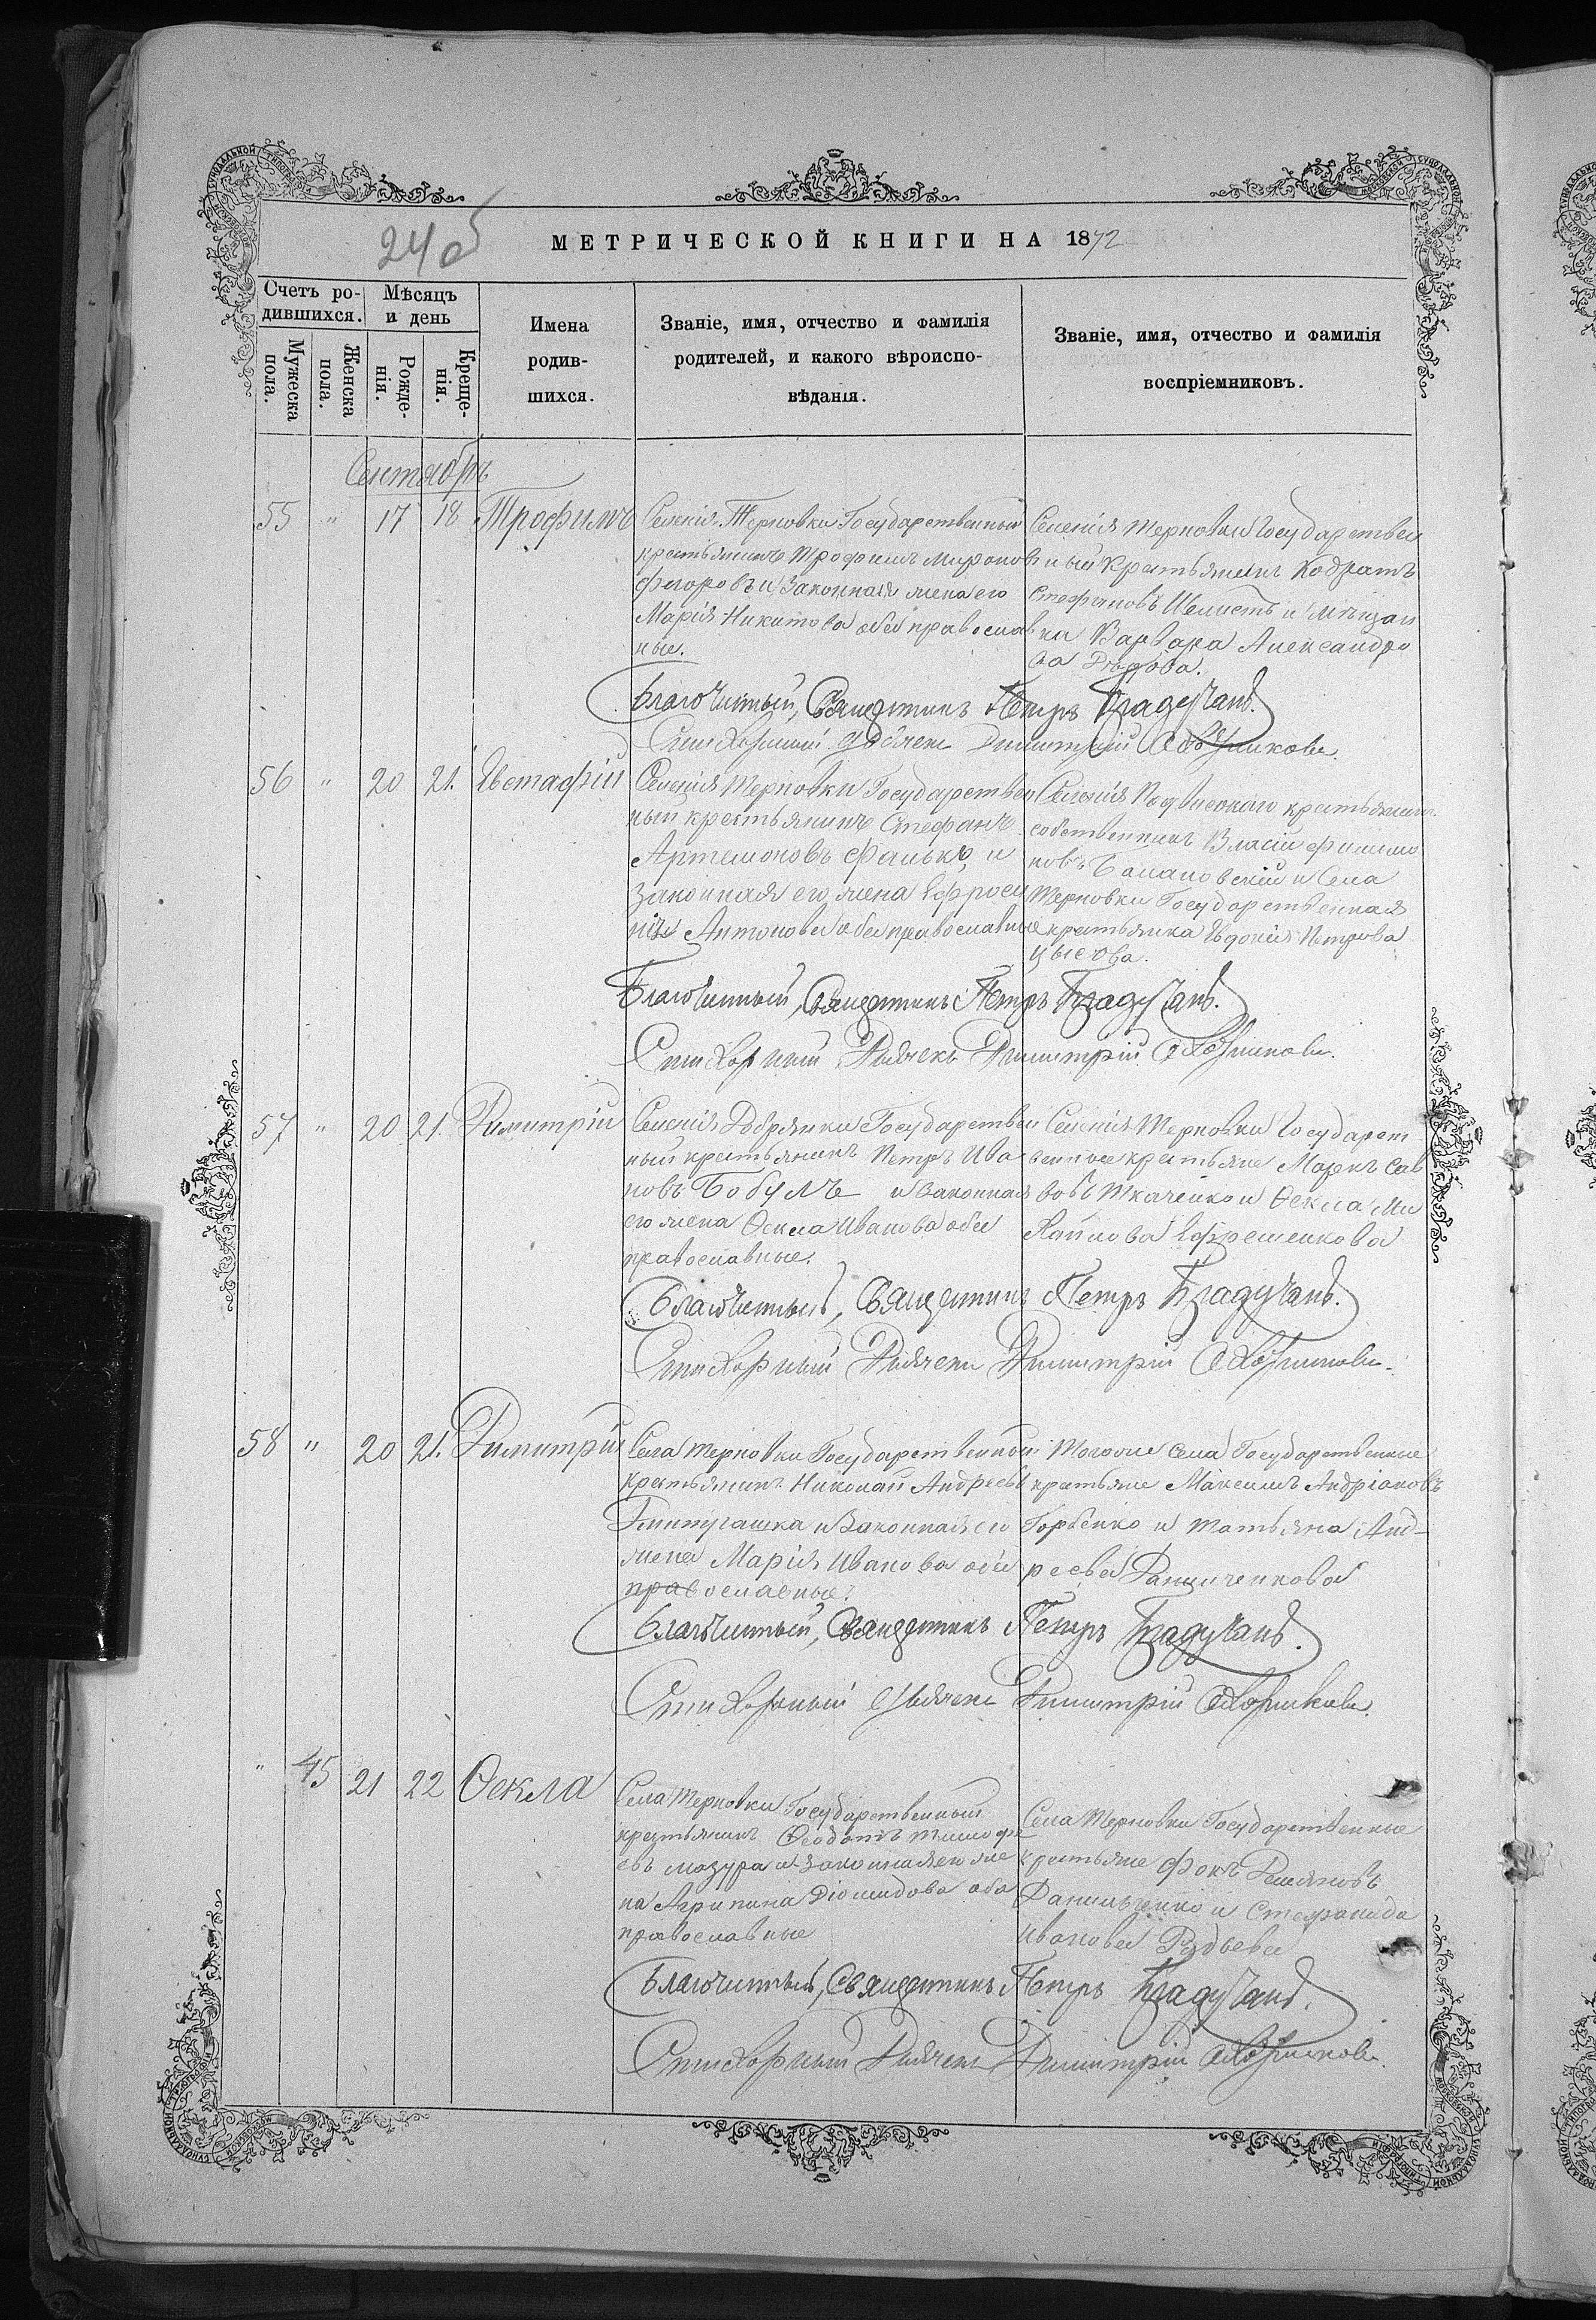 24об
МЕТРИЧЕСКОЙ КНИГИ НА 1872
Счетъ ро-
дившихся.
Мѣсяцъ
и день
Мужеска
пола.
Женска
пола.
Рожде-
нія.
Креще-
нія.
Имена
родив-
шихся.
Званіе, имя, отчество и фамилія
родителей, и какого вѣроиспо-
вѣданія.
Званіе, имя, отчество и фамилія
воспріемниковъ.
Сентябрь
55 " 17 18 Трофимъ
Селенія Терновки Государственный
крестьянинъ Трофимъ Миронов
Фегоровъ и законная жена его
Марія Никитова обеи православ
ные.
Селенія Терновки Государствен
ный Крестьянинъ Кодратъ
Стефановъ и мѣщан
ка Варвара Александро
ва
Благочинный, Священникъ Петръ
Стихарный Дьячекъ Димитрій
56 " 20 21. Евстафій
Селенія Терновки Государствен
ный крестьянинъ Стефанъ
Артемоновъ Фанько, и
законная его жена Ефроси
нія Антонова обеи православные
Селенія крестьянинъ
собственникъ Власій Филимо
новъ Бамановскій и Села
Терновки Государственная
крестьянка Евдокія Петрова
Благочинный, Священникъ Петръ
Стихарный Дьячекъ Димитрій
57 " 20 21. Димитрій
Селенія Добрянки Государствен
ный крестьянинъ Петръ Ива
новъ Бобулъ и законная
его жена Ѳекла Иванова обеи
православные.
Селенія Терновки Государст
венные крестьяне Маркъ Сав
вовъ Ткаченко и Ѳекла Ми
хайлова Ефременкова
Благочинный, Священникъ Петръ
Стихарный Дьячекъ Димитрій
58 " 20 21. Димитрій
Села Терновки Государственный
крестьянинъ Николай Андреевъ
и Законная его
жена Марія Иванова обеи
православные.
Тогоже Села Государственные
крестьяне Максимъ Андріановъ
Горбенко и Татьяна Анд-
реева
Благочинный, Священникъ Петръ
Стихарный Дьячекъ Димитрій
" 45 21 22 Ѳекла
Села Терновки Государственный
крестьянинъ Ѳеодотъ Тимофе
евъ Мазура и законная его же
на Агрипина Діомидова оба
православные
Села Терновки Государственные
крестьяне Фокъ Демяновъ
Данильченко и Стефанида
Иванова
Благочинный, Священникъ Петръ
Стихарный Дьячекъ Димитрій